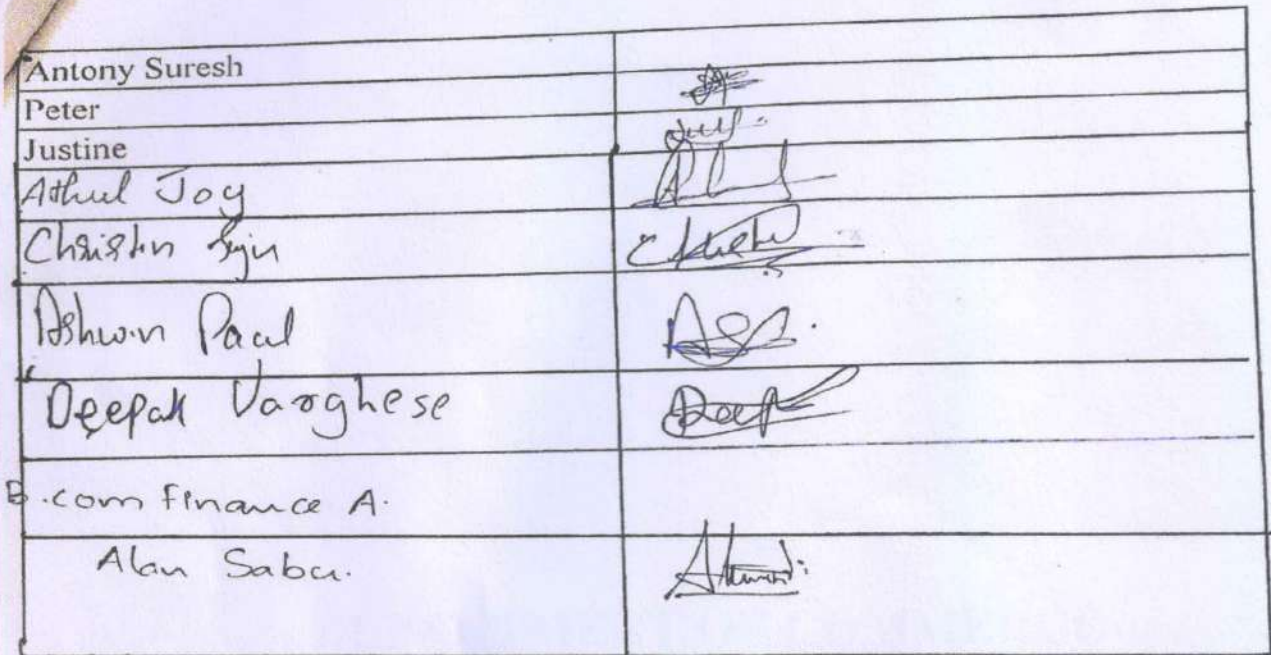 Antony Suresh
Peter
Justine
Athul Joy
Christin
Ashwin Paul
Deepak Varghese
Deep
B.com finance A.
Alan Sabu.